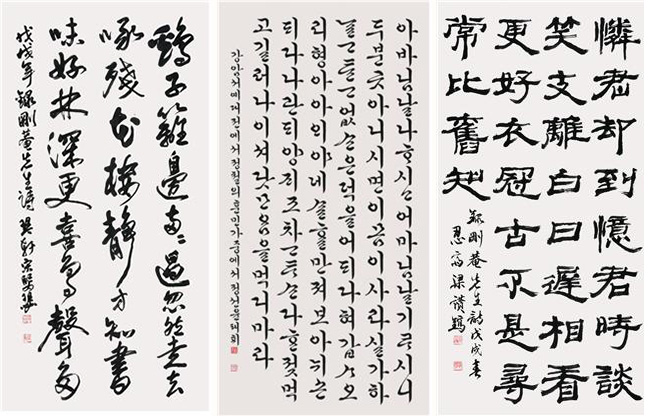 鷄子籬邊两〻過忽然走去
啄殘花樓靜方知書
味好林深更喜鳥聲多
戊戌年錄剛菴先生詩
아바님날나ᄒᆞ시고어마님날기ᄅᆞ시니
두분곳아니시면이몸이사라실가하
ᄂᆞᆯᄀᆞᄐᆞᆫᄀᆞ업ᄉᆞᆫ은덕을어ᄃᆡ다혀갑ᄉᆞ오
리형아아ᄋᆡ야네ᄉᆞᆯᄒᆞᆯᄆᆞᆫ져보아뉘손
ᄃᆡ타나관ᄃᆡ양ᄌᆡ조차ᄀᆞᄐᆞᄉᆞᆫ다ᄒᆞᆫ졋먹
고길러나이셔닷ᄆᆞᄋᆞᆷ을먹디마라
강암서예대전에서정철의훈민가중에서
憐君却到憶君時談
笑支離白日遲相看
更好衣冠古不是尋
常比舊知
錄剛菴先生詩戊戌春